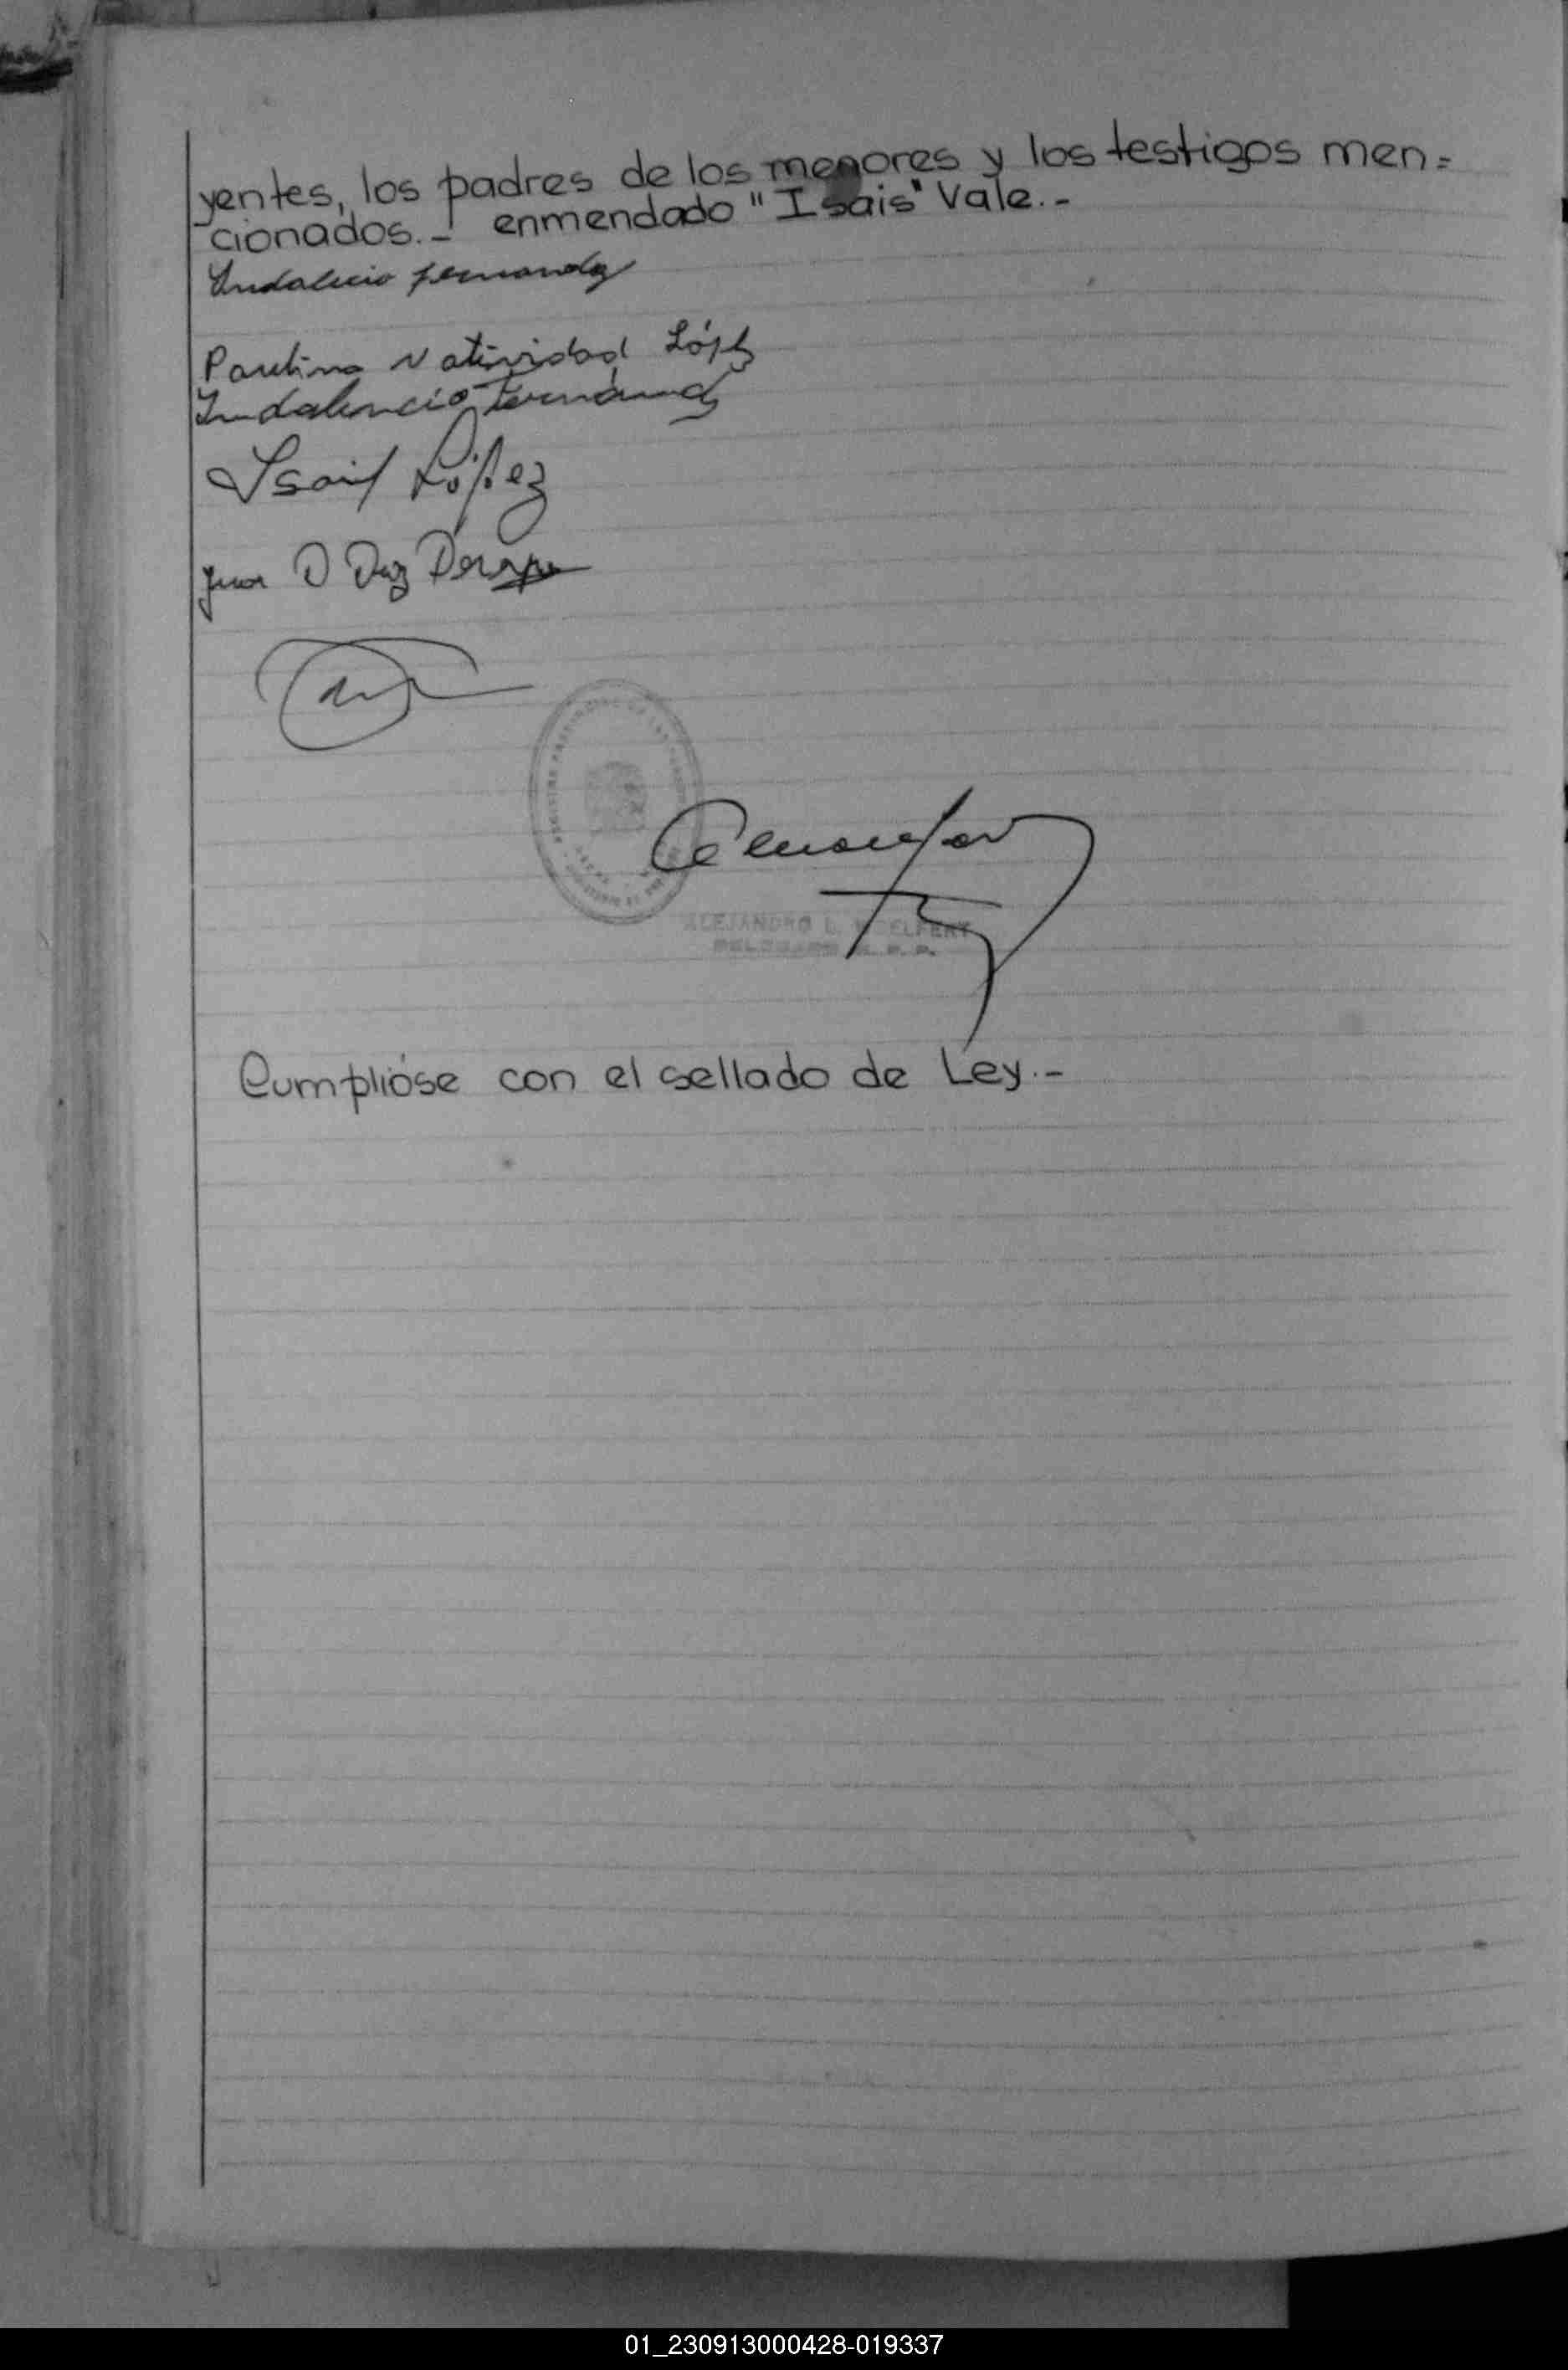 yentes, los padres de los menores y los testigos men=
cionados.- enmendado "Isais" Vale.-
Indalecio fernandez
Paulina Natividad López
Indalencio Fernández
Isais López
Juan D Diaz
ALEJANDRO L.
DELEGADO R. P. P.
Cumplióse con el sellado de Ley.-
01_230913000428-019337